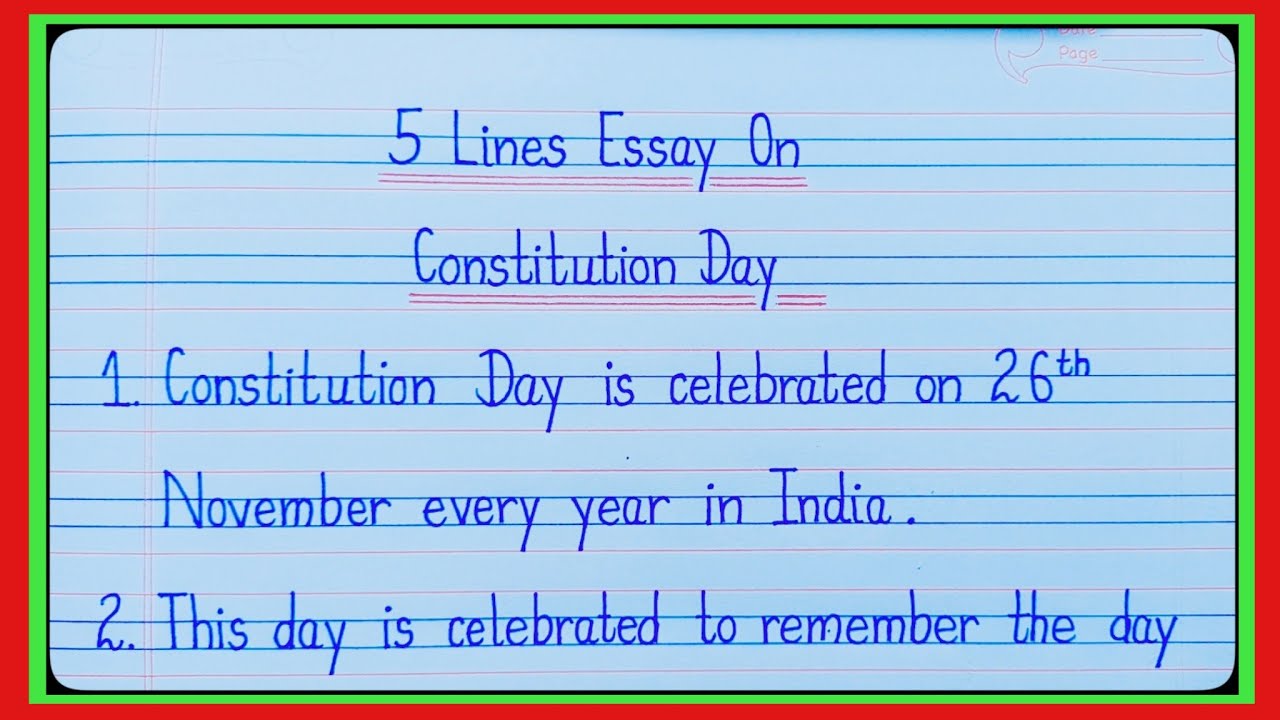 Date
Page
5 Lines Essay On
Constitution Day
1. Constitution Day is celebrated on 26th
November every year in India.
2. This day is celebrated to remember the day